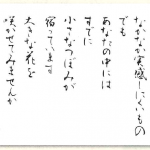 なかなか実感しにくいもの
でも
あなたの中には
すでに
小さなつぼみが
宿っています
大きな花を
咲かせてみませんか